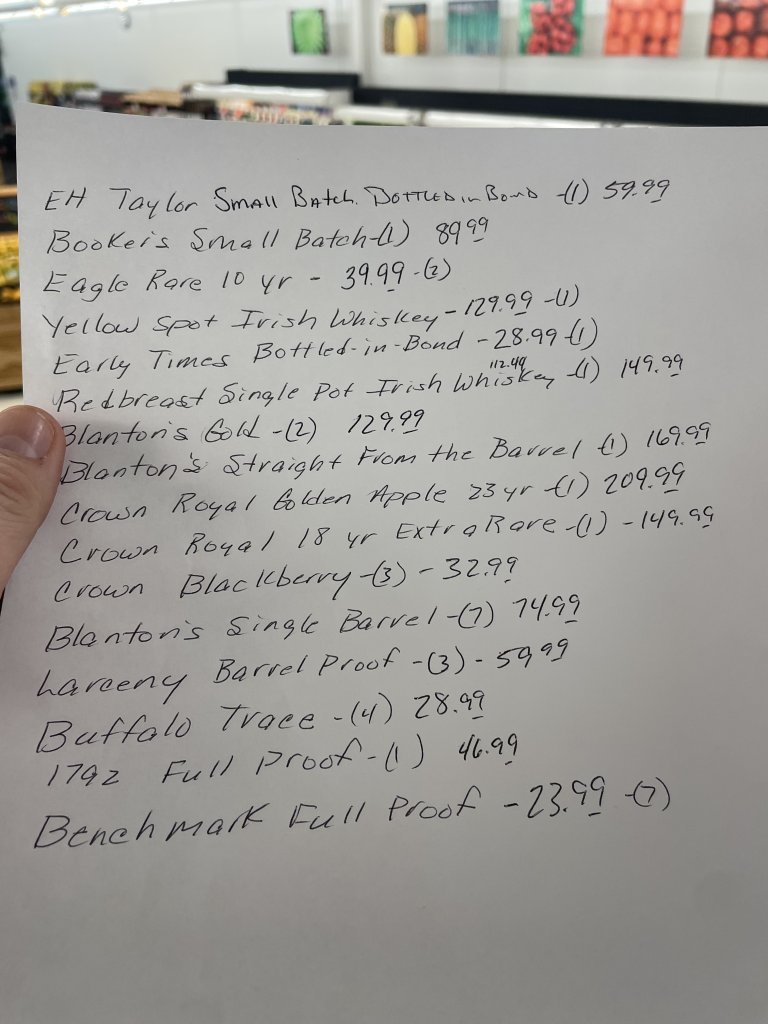 EH Taylor Small Batch. Bottled in Bond -(1) 59.99
Booker's Small Batch-(1) 89.99
Eagle Rare 10 yr - 39.99 -(2)
Yellow Spot Irish Whiskey - 129.99 -(1)
Early Times Bottled-in-Bond - 28.99 (1)
112.49
Redbreast Single Pot Irish Whiskey -(1) 149.99
Blanton's Gold -(2) 129.99
Blanton's Straight From the Barrel -(1) 169.99
Crown Royal Golden Apple 23 yr -(1) 209.99
Crown Royal 18 yr Extra Rare -(1) - 149.99
Crown Blackberry -(3) - 32.99
Blanton's Single Barrel -(7) 74.99
Larceny Barrel Proof -(3) - 59.99
Buffalo Trace -(4) 28.99
1792 Full Proof -(1) 46.99
Benchmark Full Proof - 23.99 -(7)